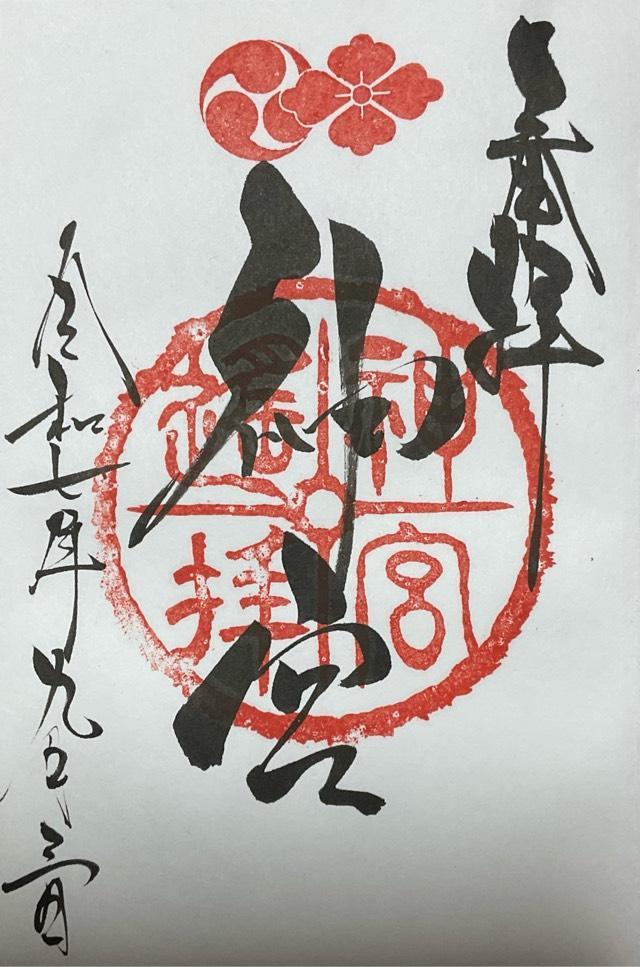 奉拝
神宮
神宮
遙拝
令和七年九月三日